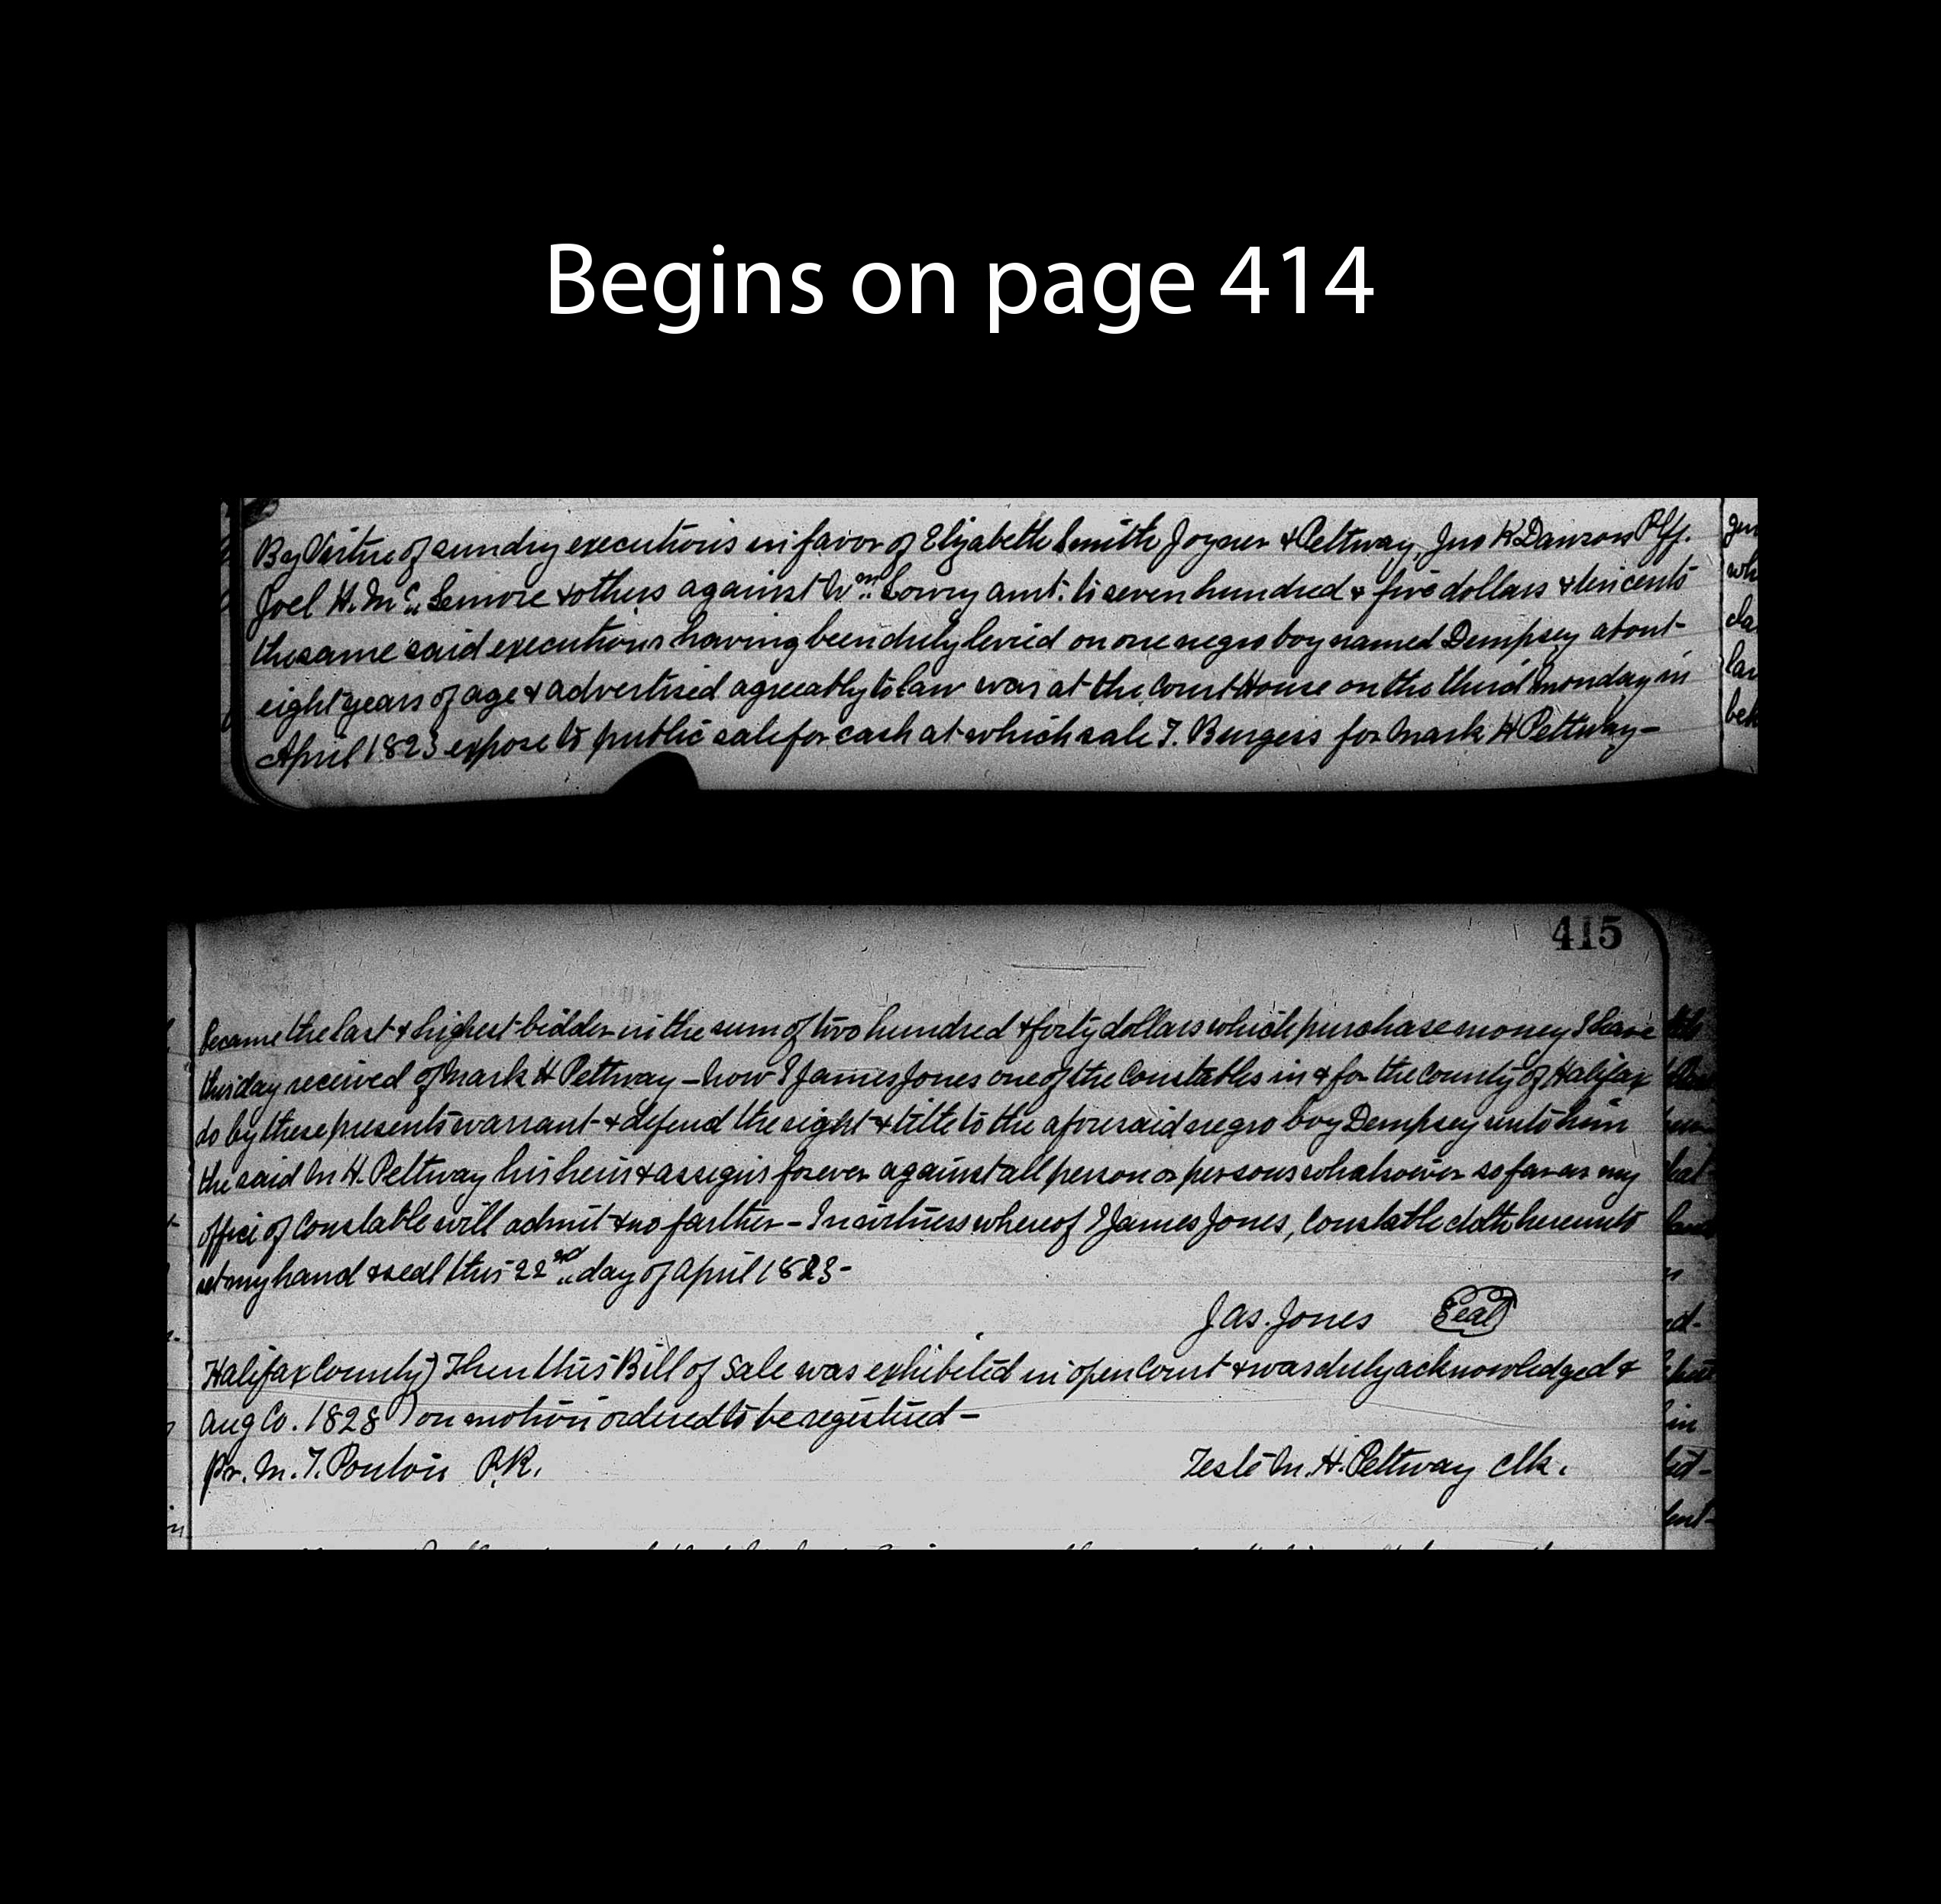 Begins on page 414
By Virtue of sundry executions in favor of Elizabeth Smith Joyner & Pettway, Jno K Dawson Plff.
Joel H. Mc,, Lemore & others against Wm.. Lowry amt: to seven hundred & five dollars & ten cents
the same said executions having been duly levied on one negro boy named Dempsey about
eight years of age & advertised agreeably to law was at the Court House on the third Monday in
April 1823 expose to public sale for cash at which sale T. Burgess for Mark H Pettway-
415
became the last & highest bidder in the sum of two hundred & forty dollars which purchase money I have
this day received of Mark H Pettway - now I James Jones one of the Constables in & for the County of Halifax
do by these presents warrant & defend the right & title to the aforesaid negro boy Dempsey unto him
the said M H. Pettway his heirs & assigns forever against all person or persons whatsoever so far as my
office of Constable will admit & no farther - In witness whereof I James Jones, Constable doth hereunto
set my hand & seal this 22nd,, day of April 1823-
Jas. Jones Seal
Halifax County) Then this Bill of Sale was exhibited in open Court & was duly acknowledged &
Aug Co. 1828 ) on motion ordered to be registered -
Pr. M. T. Ponton P.R. Teste M. H. Pettway clk.